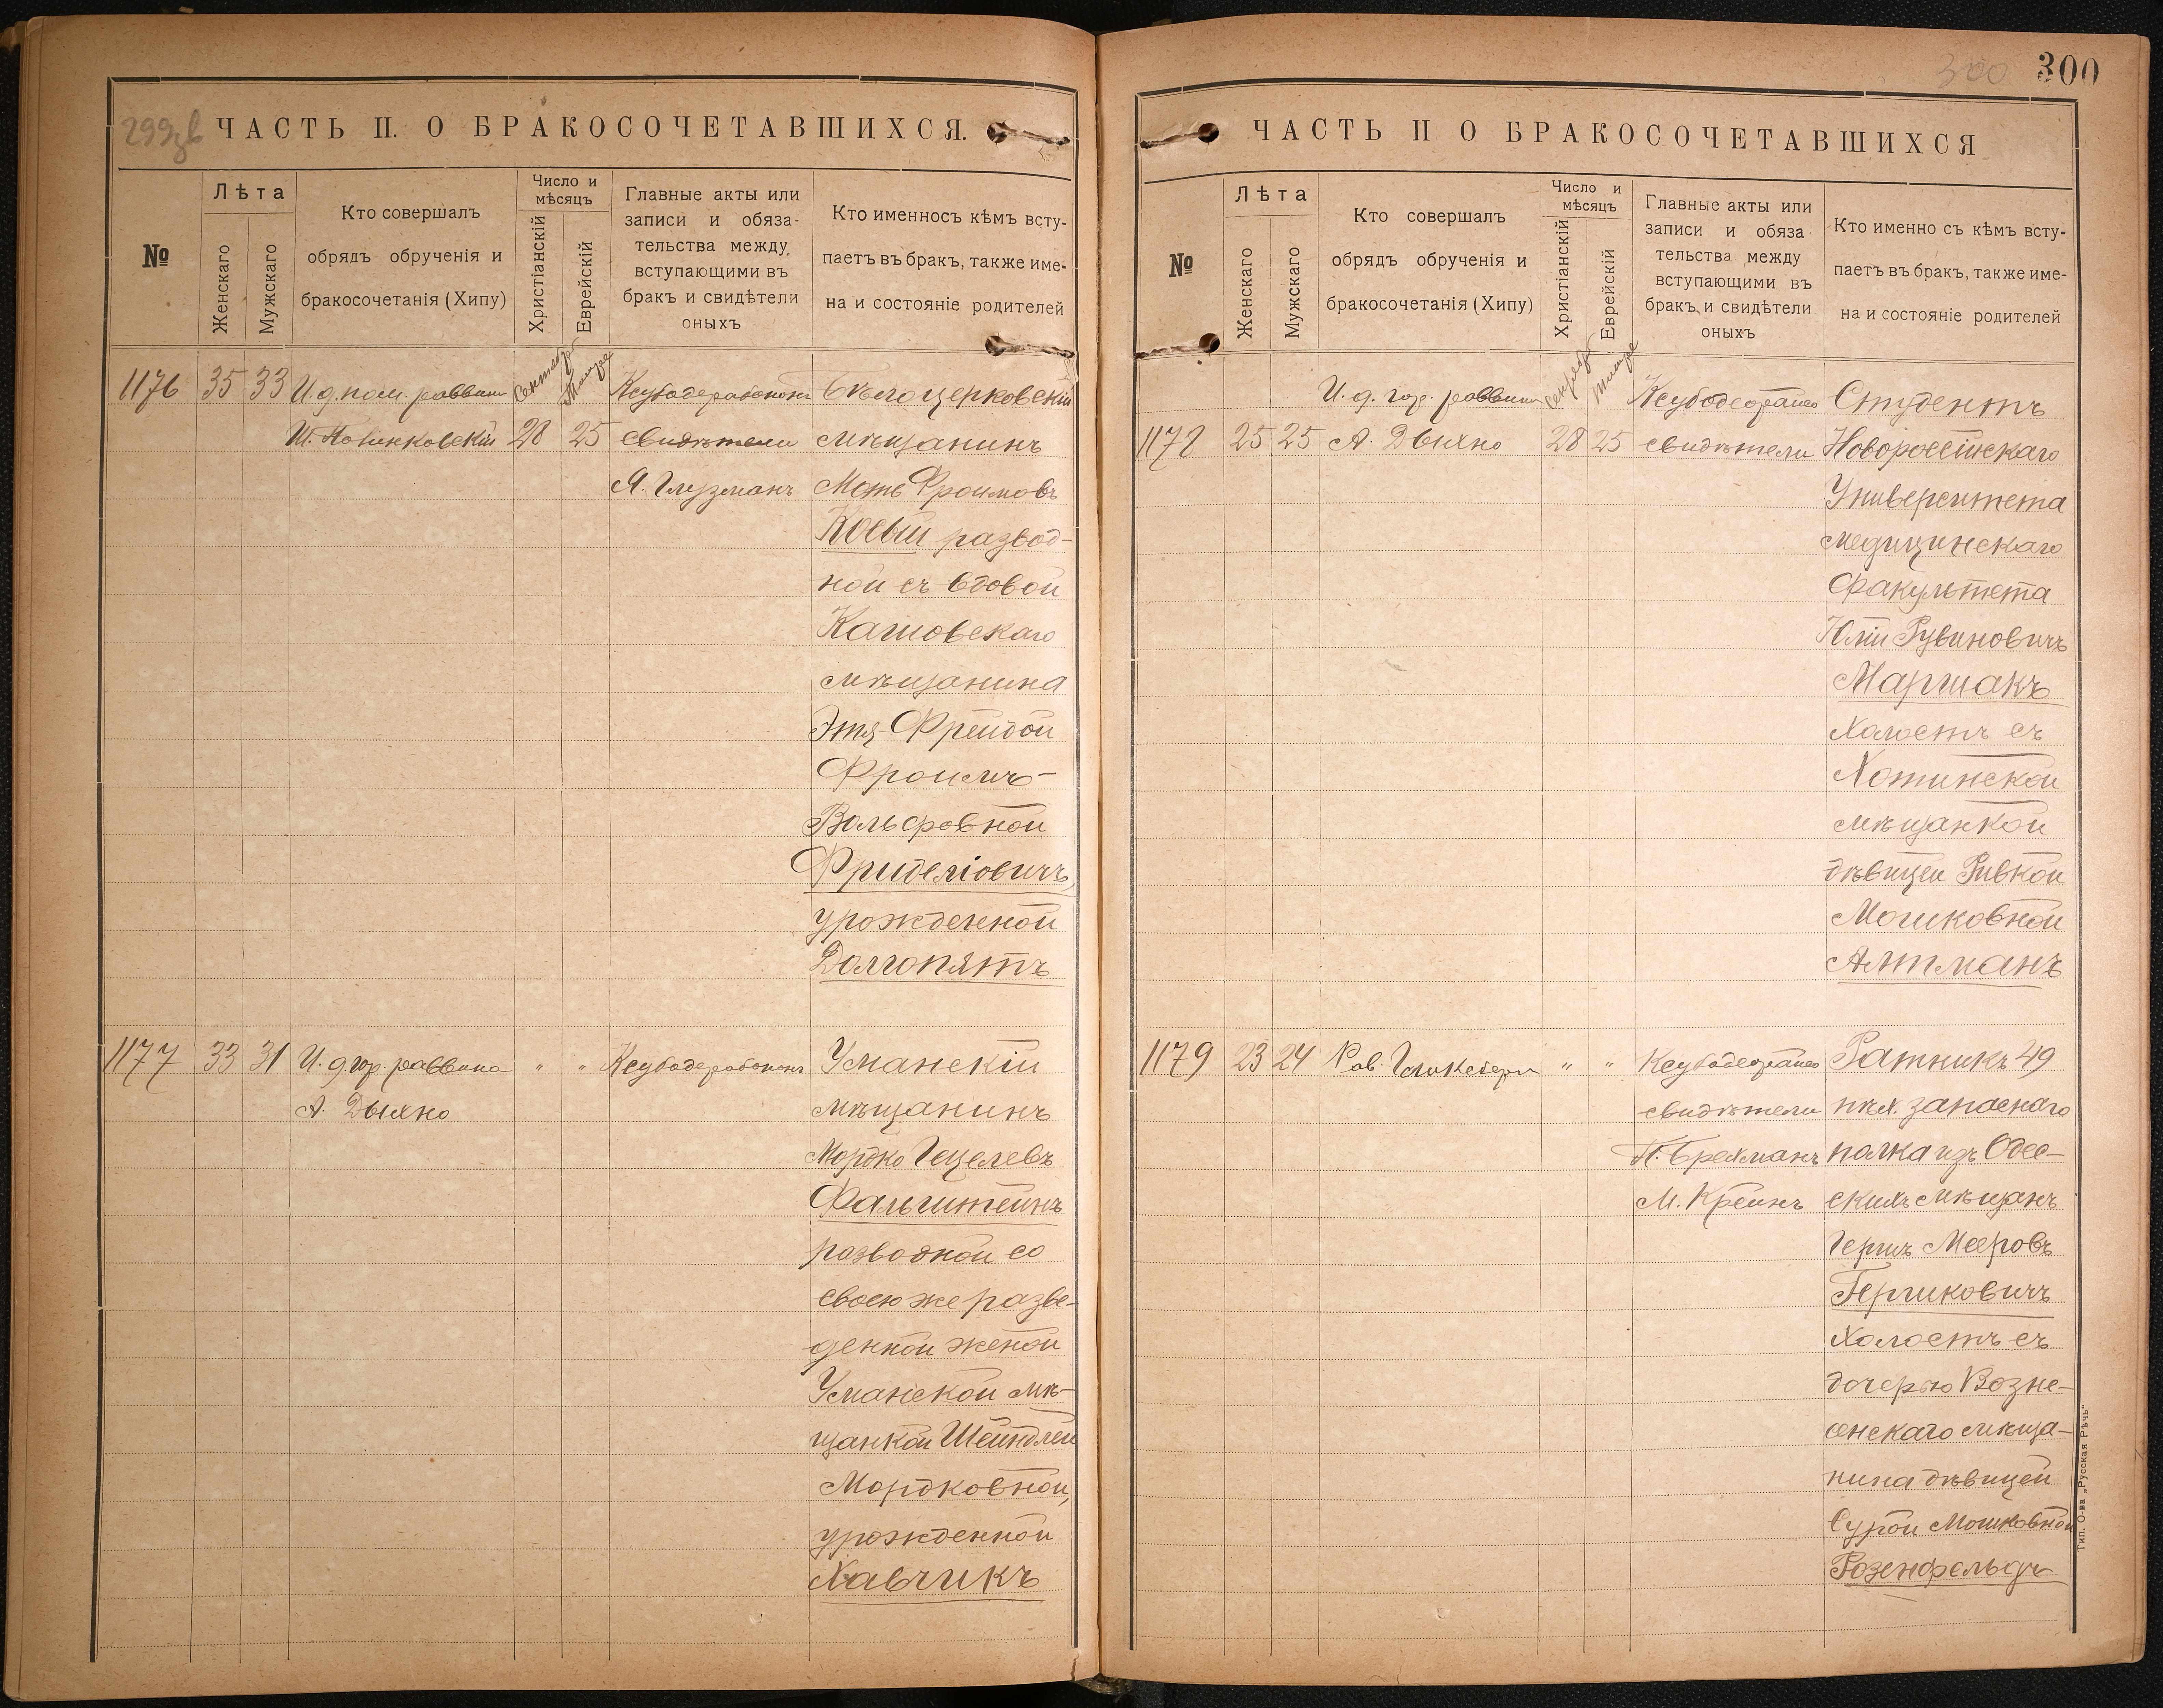 299зв
ЧАСТЬ II. О БРАКОСОЧЕТАВШИХСЯ.
№
Лѣта
Женскаго
Мужскаго
Кто совершалъ
обрядъ обрученія и
бракосочетанія (Хипу)
Число и
мѣсяцъ
Христіанскій
Еврейскій
Главные акты или
записи и обяза-
тельства между
вступающими въ
бракъ и свидѣтели
оныхъ
Кто именносъ кѣмъ всту-
паетъ въ бракъ, также име-
на и состояніе родителей
1176 35 33 И. д. пом. раввина
28 25
свидѣтели
А. Глузманъ
Бѣлоцерковскій
мѣщанинъ
Моть Фроимовъ
Коевый развод-
ной съ вдовой
мѣщанина
Этя-Фрейдой
Фроимъ-
Вольфовной
урожденной
Долгопятъ
1177 33 31 И. д. гор. раввина
А. Дыхно
" "
Уманскій
мѣщанинъ
Мордко Гецелевъ
Фальштейнъ
разводной со
своею же разве-
денной женой
Уманской мѣ-
щанкой Шейндлей
Мордковной,
урожденной
Хавчикъ
300
300
ЧАСТЬ II О БРАКОСОЧЕТАВШИХСЯ
№
Лѣта
Женскаго
Мужскаго
Кто совершалъ
обрядъ обрученія и
бракосочетанія (Хипу)
Число и
мѣсяцъ
Христіанскій
Еврейскій
Главные акты или
записи и обяза
тельства между
вступающими въ
бракъ и свидѣтели
оныхъ
Кто именно съ кѣмъ всту-
паетъ въ бракъ, также име-
на и состояніе родителей
1178 25 25 И. д. гор. раввина
А. Дыхно
28 25
свидѣтели
Студентъ
Новороссійскаго
Университета
медицинскаго
факультета
Юлій Рувиновичъ
Маршакъ
холостъ съ
Хотинской
мѣщанкой
дѣвицей Ривкой
Мошковной
Алтманъ
1179 23 24 Рав.
" "
свидѣтели
М. Крейнъ
Ратникъ 49
пѣх. запаснаго
полка изъ Одес-
скихъ мѣщанъ
Гершъ Мееровъ
Гершковичъ
холостъ съ
дочерью Возне-
сенскаго мѣща-
нина дѣвицей
Сурой Мошковной
Розенфельдъ
Тип. О-ва „Русская Рѣчь"